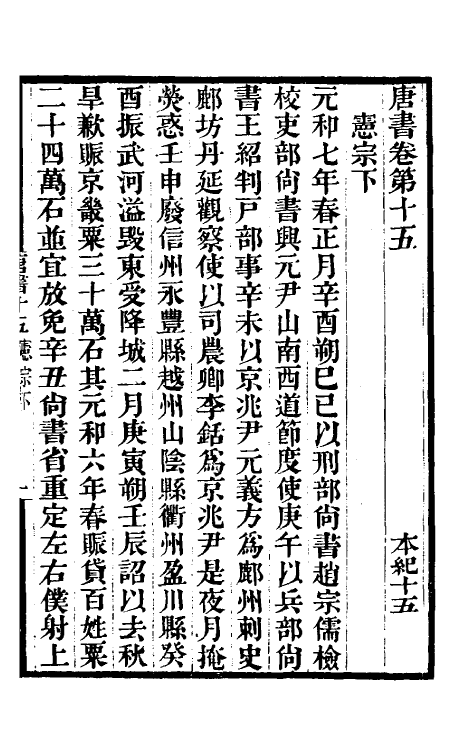 唐書卷第十五 本紀十五
憲宗下
元和七年春正月辛酉朔己巳以刑部尙書趙宗儒檢
校吏部尙書興元尹山南西道節度使庚午以兵部尙
書王紹判戸部事辛未以京兆尹元義方爲鄜州刺史
鄜坊丹延觀察使以司農卿李銛爲京兆尹是夜月掩
熒惑壬申廢信州永豐縣越州山陰縣衢州盈川縣癸
酉振武河溢毀東受降城二月庚寅朔壬辰詔以去秋
旱歉賑京畿粟三十萬石其元和六年春賑貸百姓粟
二十四萬石並宜放免辛丑尙書省重定左右僕射上
唐書十五憲宗下 一